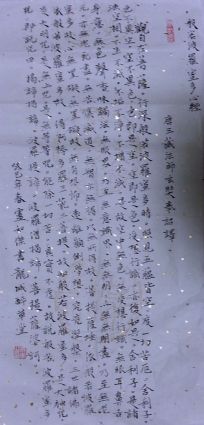 般若波羅蜜多心經
唐三藏法師玄奘奉詔譯
觀自在菩薩行深般若波羅蜜多時照見五蘊皆空度一切苦厄舍利子
色不異空空不異色色即是空空即是色受想行識亦復如是舍利子是諸
法空相不生不滅不垢不淨不增不減是故空中無色無受想行識無眼耳鼻舌
身意無色聲香味觸法無眼界乃至無意識界無無明亦無無明盡乃至無老
死亦無老死盡無苦集滅道無智亦無得以無所得故菩提薩埵依般若波羅
蜜多故心無罣礙無罣礙故無有恐怖遠離顛倒夢想究竟涅槃三世諸佛
依般若波羅蜜多故得阿耨多羅三藐三菩提故知般若波羅蜜多是大神咒
是大明咒是無上咒是無等等咒能除一切苦真實不虛故說般若波羅蜜多
咒即說咒曰揭諦揭諦波羅揭諦波羅僧揭諦菩提薩婆訶
癸巳年春 書 龍城 堂